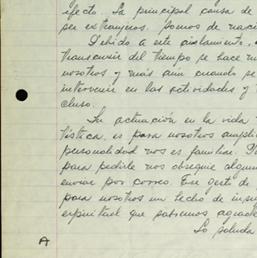 efecto. La principal causa de
ser extranjeros. Somos de naci
Debido a este aislamiento,
transcurrir del tiempo se hace mu
nosotros y más aun cuando se
intervenir en las actividades y
cluso.
Su actuación en la vida
tística, es para nosotros ampli
personalidad nos es familiar. P
para pedirle nos obsequie algun
enviar por correo. Ese gesto de
para nosotros un hecho de in
espiritual que sabremos agrade
Lo saluda
A